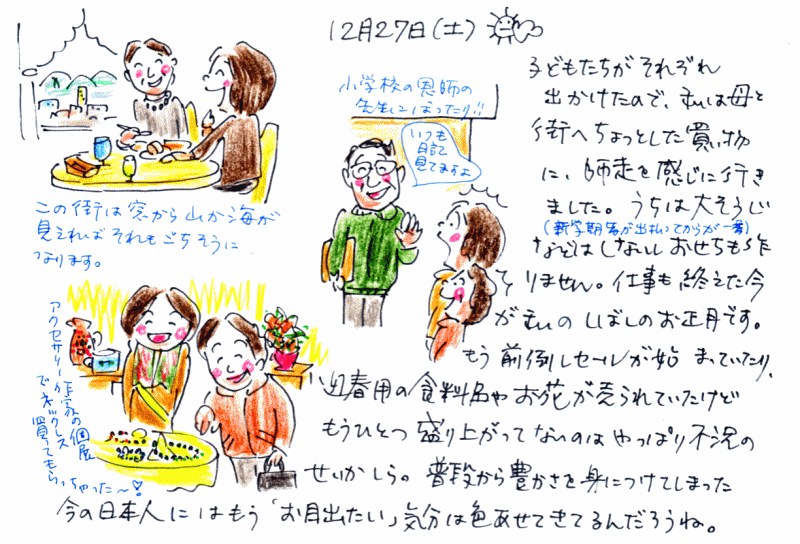 12月27日(土)
子どもたちが それぞれ
出かけたので、私は母と
街へちょっとした買い物
に、師走を感じに行き
ました。うちは大そうじ
(新学期 皆が出払ってからが一番)
などはしないし おせちも作
りません。仕事も終えた今
が私の しばしのお正月です。
もう 前倒しセールが始 まっていたり、
迎春用の食料品や お花が売られていたけど
もうひとつ 盛り上がってないのは やっぱり不況の
せいかしら。 普段から豊かさを身につけてしまった
今の日本人にはもう「お目出たい」気分は色あせてきてるんだろうね。
この街は窓から山か海が
見えればそれもごちそうに
なります。
小学校の恩師の
先生にばったり!!
いつも
日記
見てますよ
アクセサリー作家の個展
でネックレス
買ってもらっちゃった〜♡